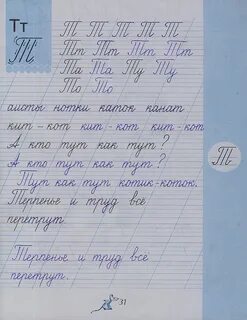 Тт
Т
Т Т Т Т Т
Тт Тт Тт Тт
Та Та Ту Ту
То То
аисты нотки каток канат
кит – кот кит – кот кит – кот
А кто тут как тут?
А кто тут как тут?
Тут как тут котик-коток.
Терпенье и труд всё
перетрут.
Т
Терпенье и труд всё
перетрут.
31